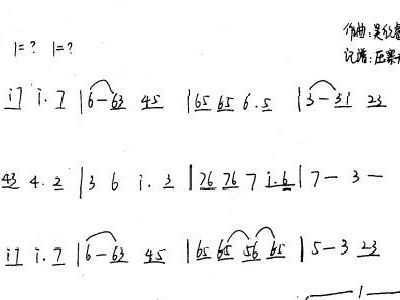 1=? 1=?
作曲:吴
记谱:
i7 i.7 | 6-63 45 | 65 65 6.5 | 3-31 23
43 4.2 | 3 6 i.3 | 76 76 7 i.6 | 7-3-
i7 i.7 | 6-63 45 | 65 65 56 65 | 5-3 23